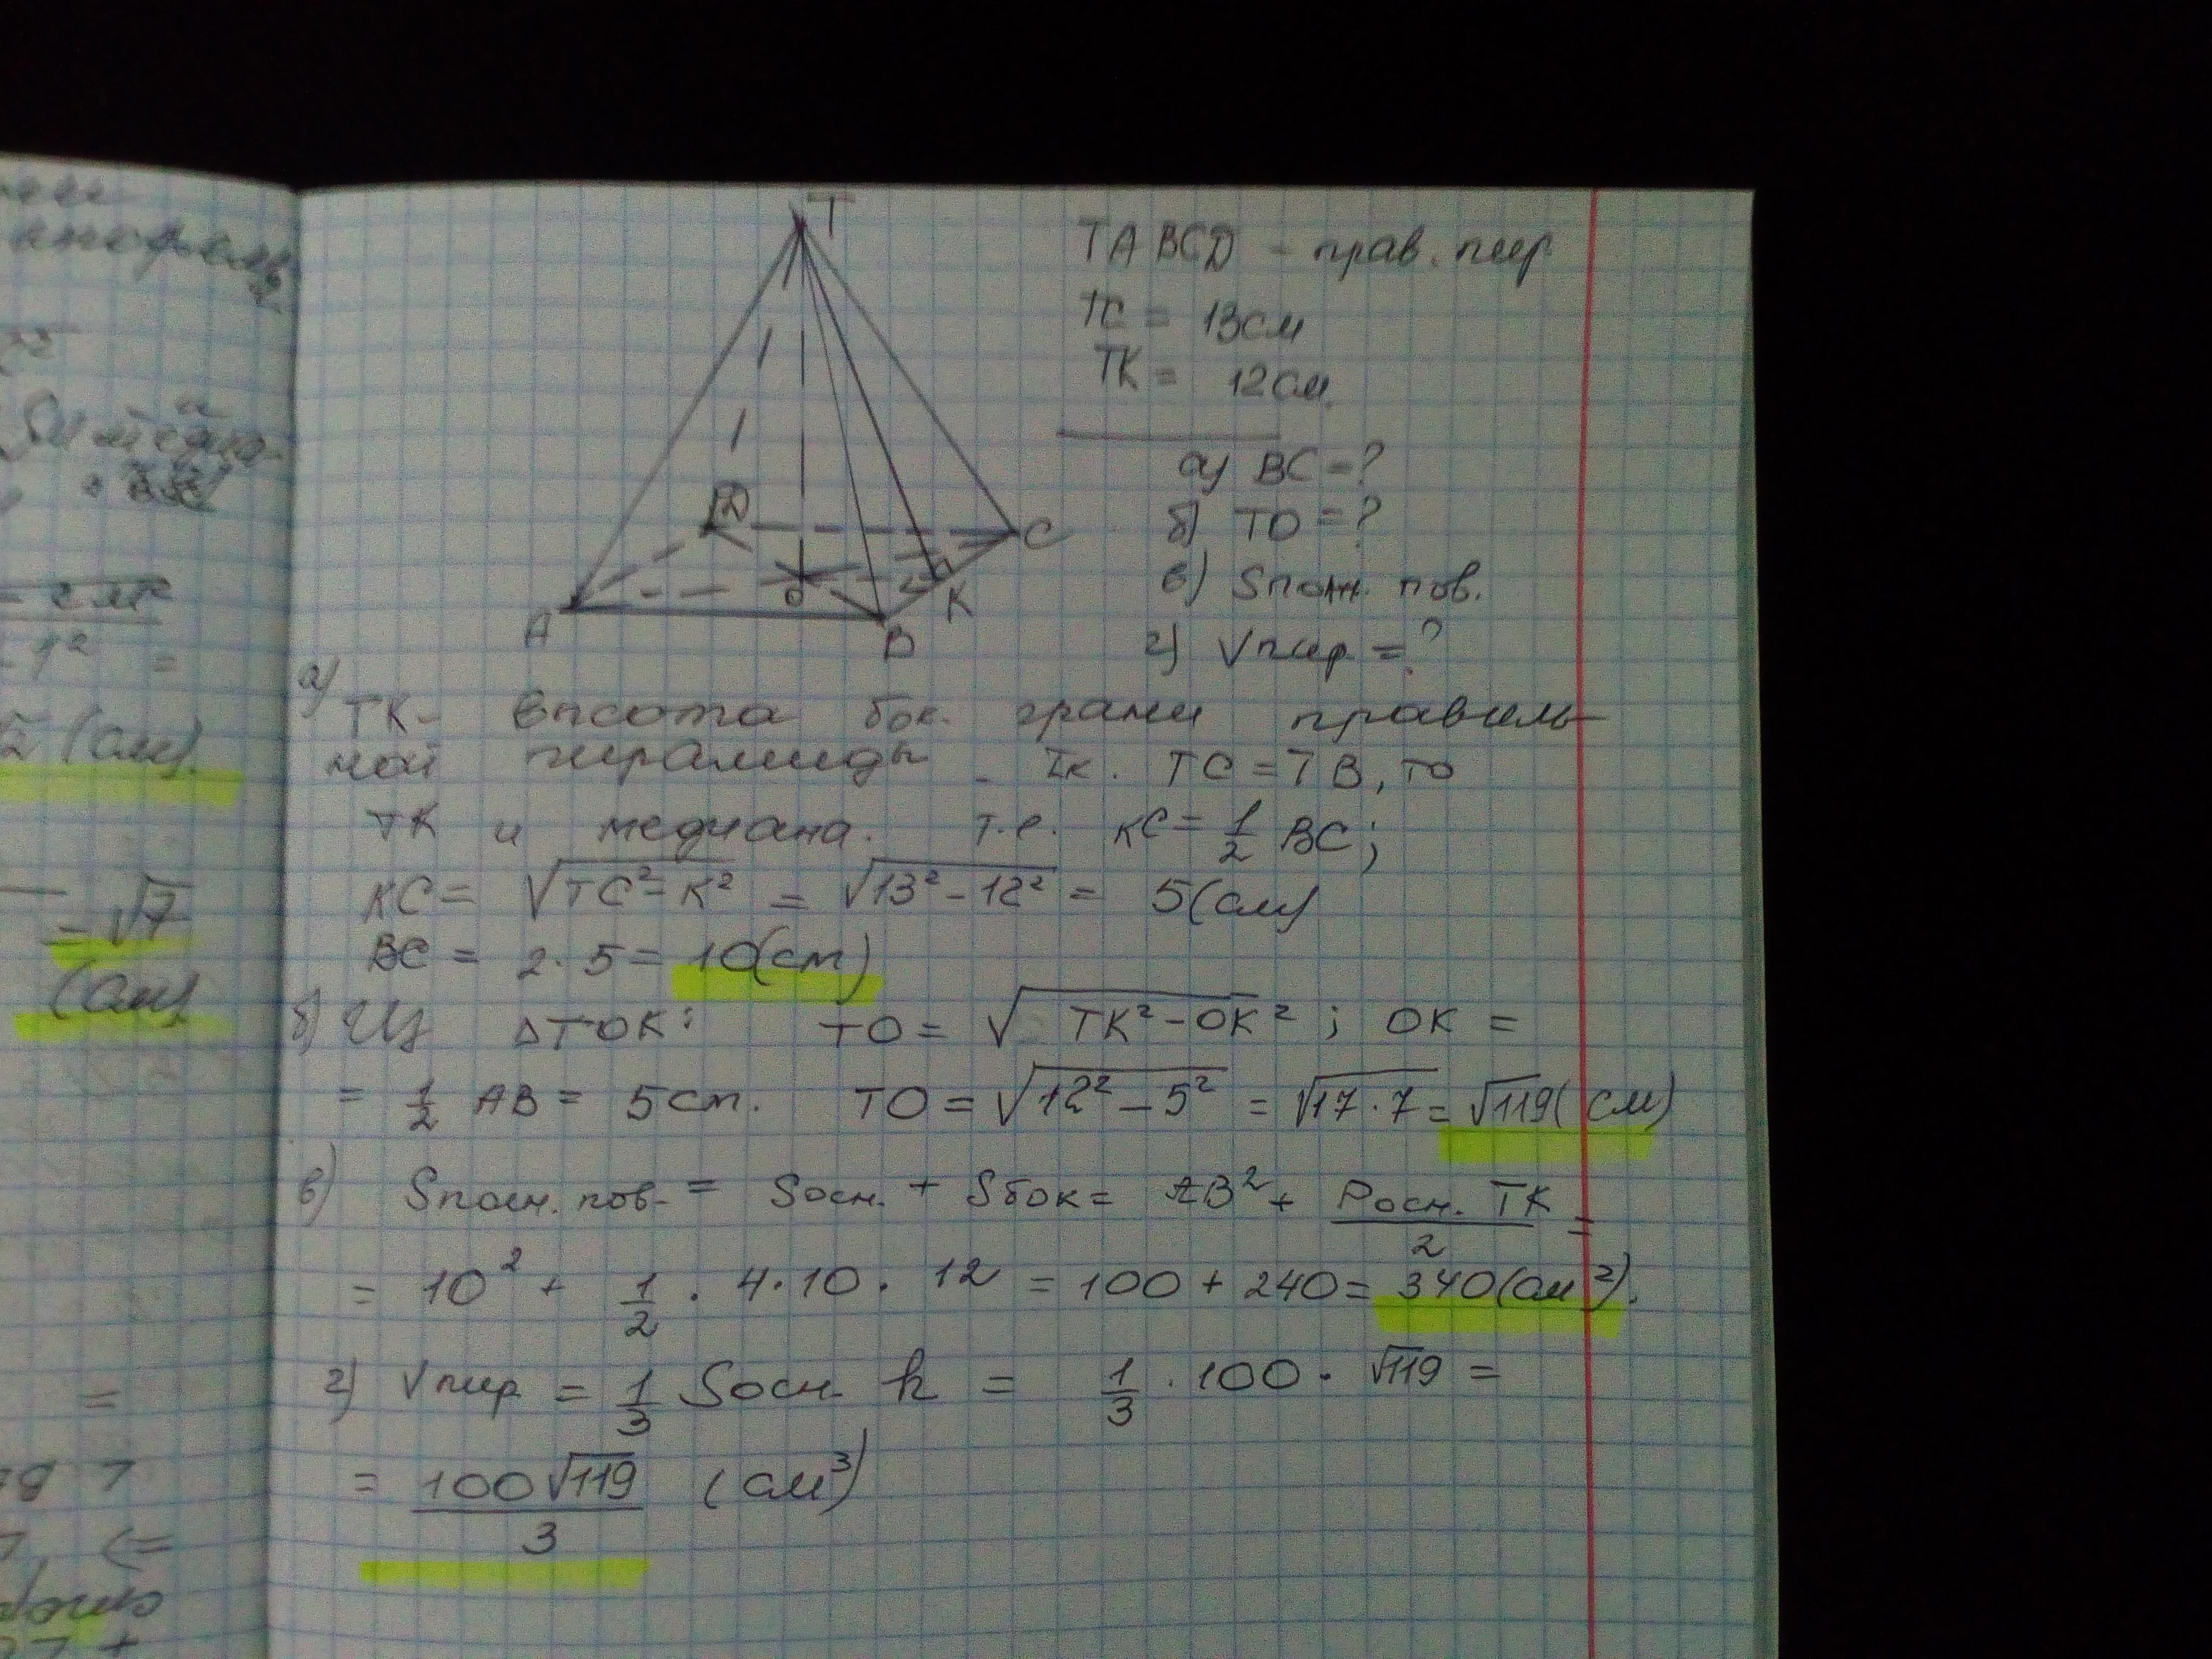 T
TABCD - прав. пир
TC = 13см
TK = 12см.
а) BC = ?
D
б) TO = ?
C
в) Sполн. пов.
О
K
A
B
г) Vпир = ?
а) TK - высота бок. грани правиль-
ной пирамиды. Тк. TC = TB, то
TK и медиана. т.е. KC = 1/2 BC;
KC = √TC² - K² = √13² - 12² = 5(см)
BC = 2 · 5 = 10(см)
б) Из ΔTOK: TO = √TK² - OK² ; OK =
= 1/2 AB = 5 см. TO = √12² - 5² = √17 · 7 = √119 (см)
в) Sполн. пов. = Sосн. + Sбок = AB² + Pосн. TK / 2 =
= 10² + 1/2 · 4 · 10 · 12 = 100 + 240 = 340 (см²).
г) Vпир = 1/3 Sосн h = 1/3 · 100 · √119 =
= 100√119 / 3 (см³)
(см).
= √7
(см)